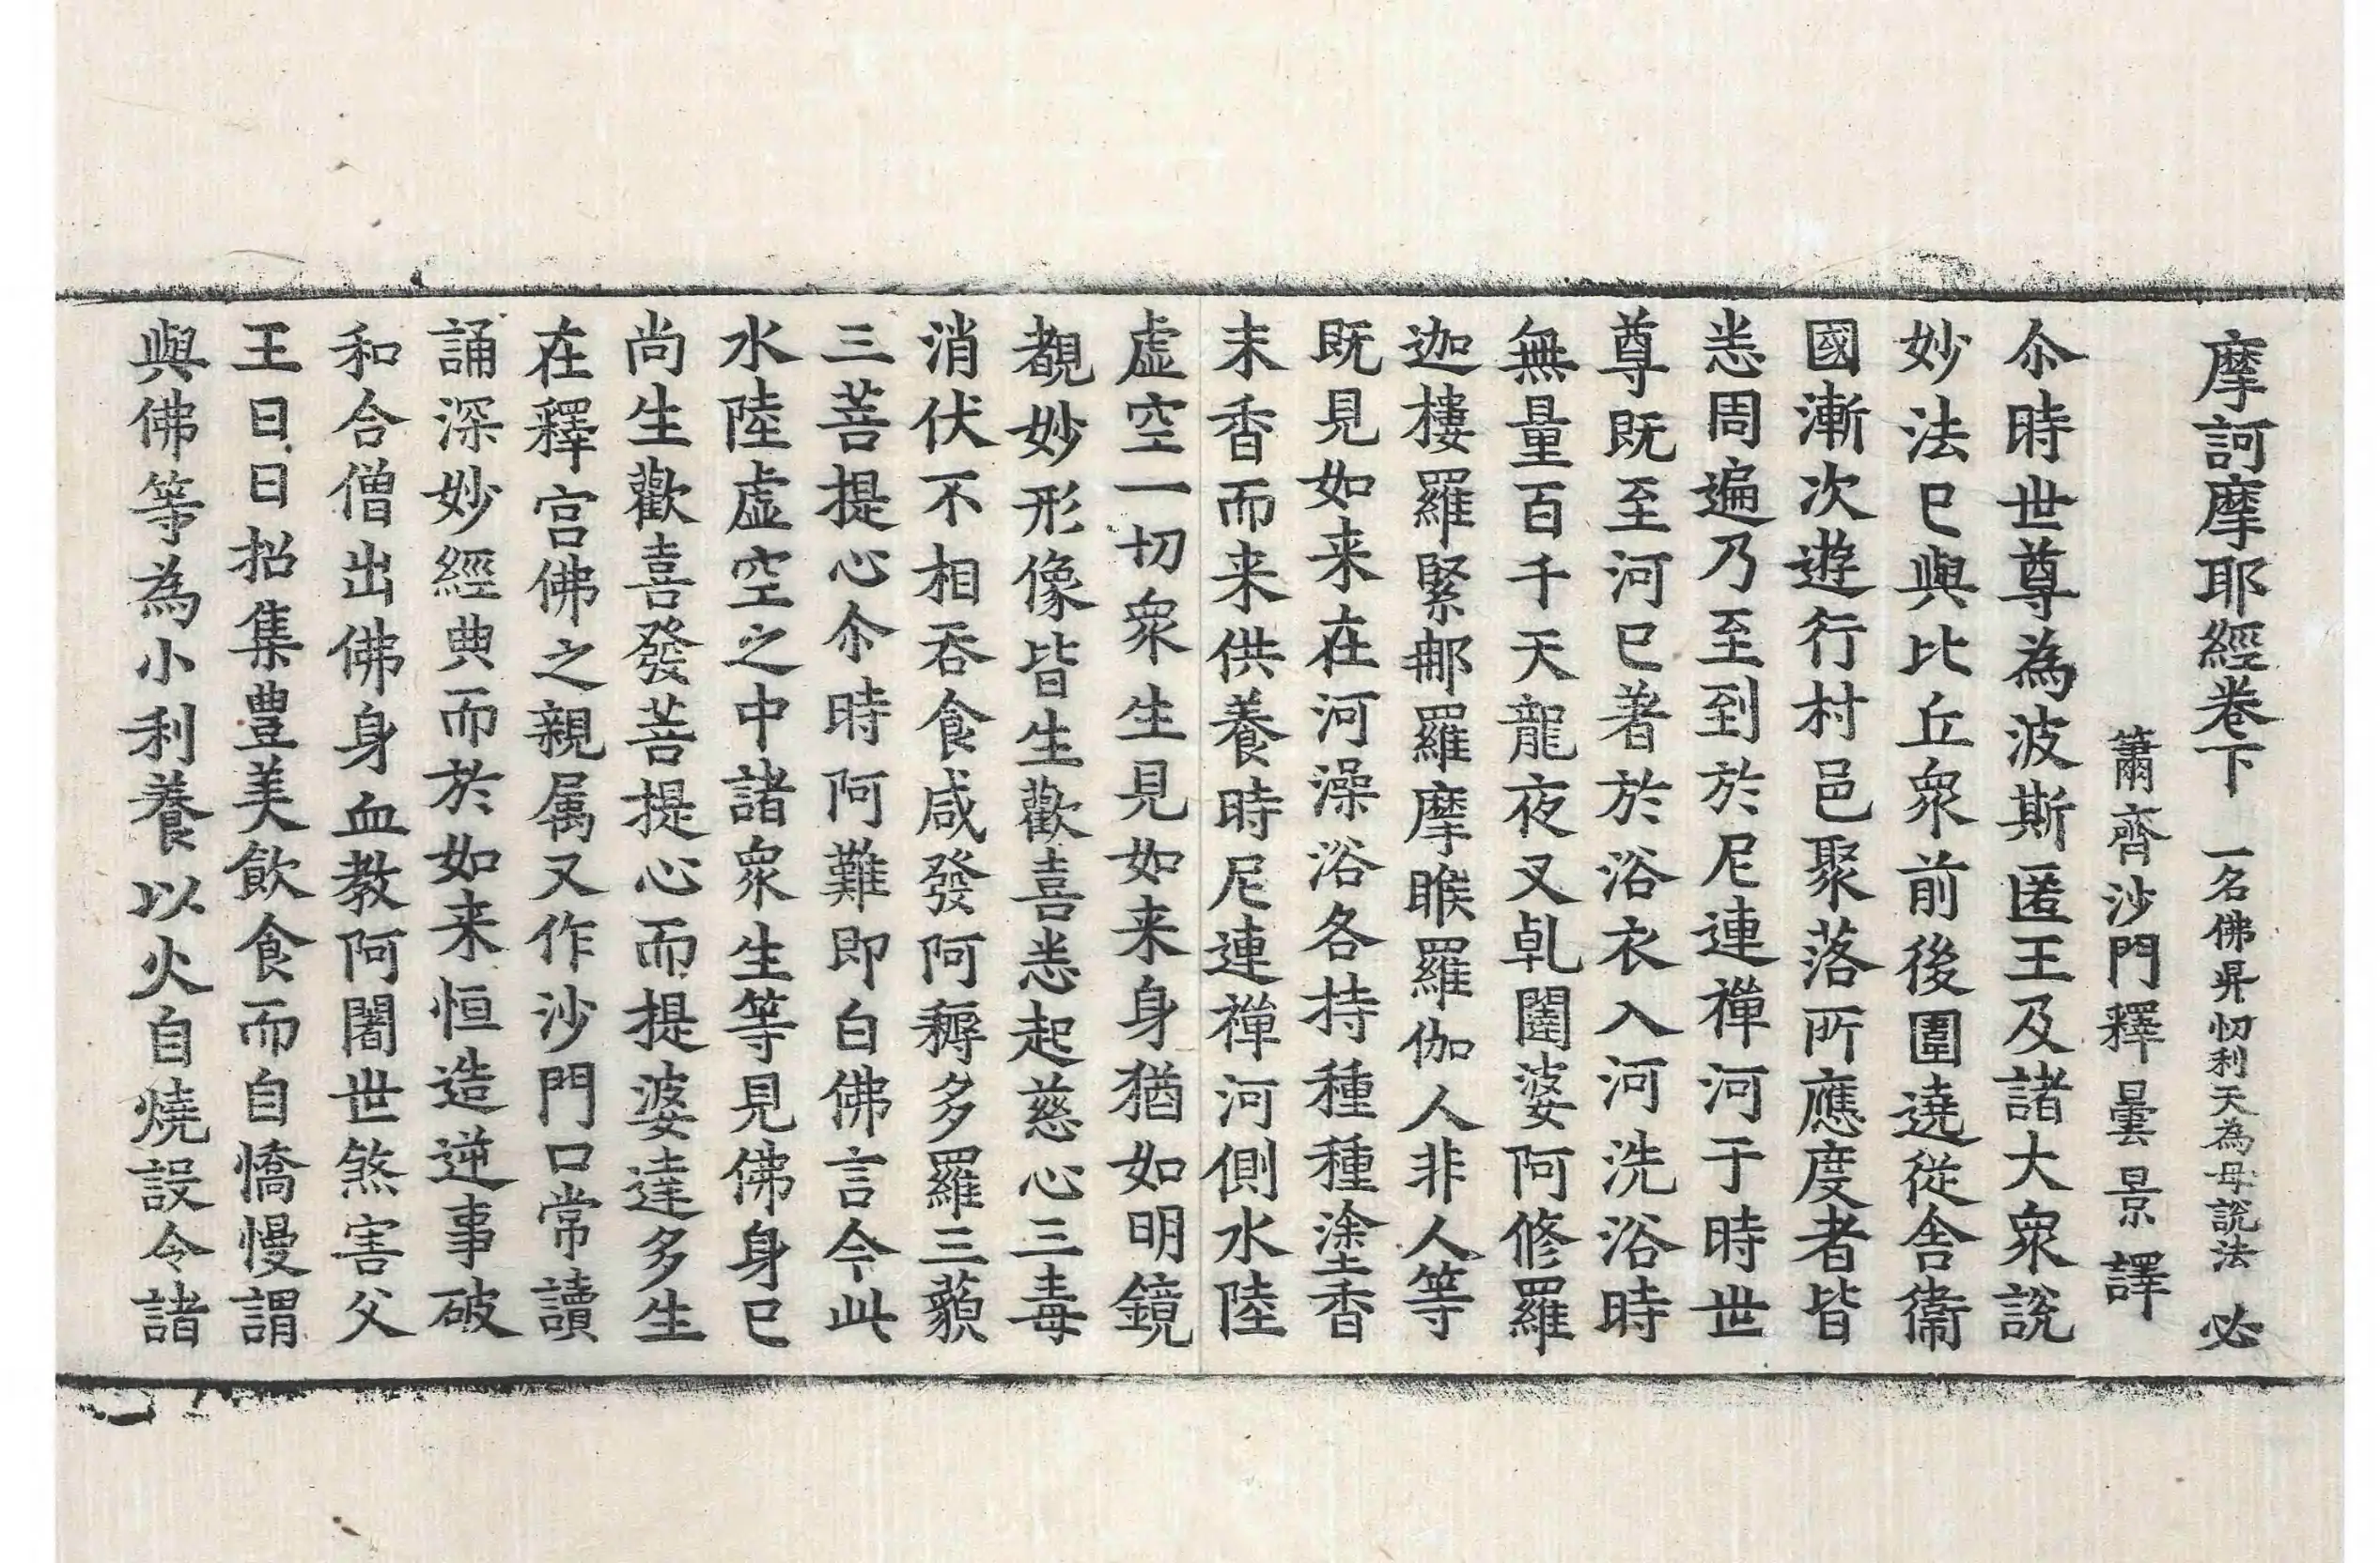 摩訶摩耶經卷下 一名佛昇忉利天為母說法 必
蕭齊沙門釋曇景譯
尒時世尊為波斯匿王及諸大衆說
妙法已與比丘衆前後圍遶從舍衞
國漸次遊行村邑聚落所應度者皆
悉周遍乃至到於尼連禪河于時世
尊既至河已著於浴衣入河洗浴時
無量百千天龍夜叉乹闥婆阿修羅
迦樓羅緊那羅摩睺羅伽人非人等
既見如来在河澡浴各持種種塗香
末香而来供養時尼連禪河側水陸
虛空一切衆生見如来身猶如明鏡
覩妙形像皆生歡喜悉起慈心三毒
消伏不相吞食咸發阿耨多羅三藐
三菩提心尒時阿難即白佛言今此
水陸虛空之中諸衆生等見佛身已
尚生歡喜發菩提心而提婆達多生
在釋宮佛之親属又作沙門口常讀
誦深妙經典而於如来恒造逆事破
和合僧出佛身血教阿闍世煞害父
王日日招集豊美飲食而自憍慢謂
與佛等為小利養以火自燒設令諸